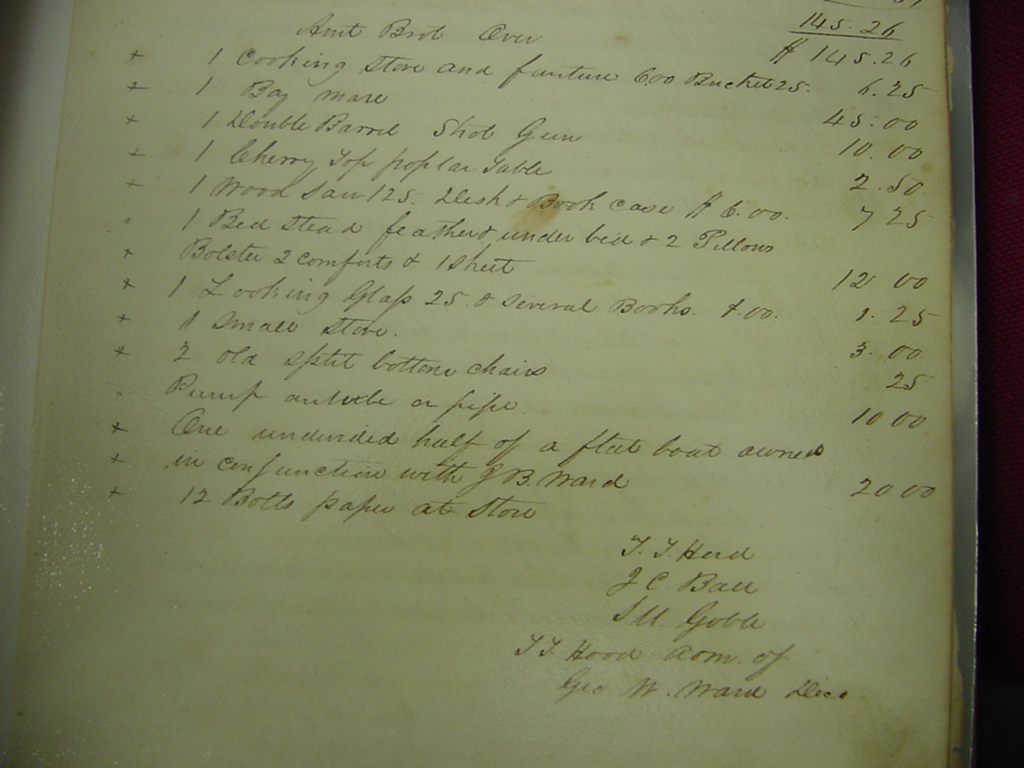 145.26
Amt Brot Over $ 145.26
+ 1 Cooking Stove and furniture 6.00 Bucket 25. 6.25
+ 1 Bay Mare 45.00
+ 1 Double Barrel Shot Gun 10.00
+ 1 Cherry Top poplar Table 2.50
+ 1 Wood Saw 125 Desk & Book case $6.00. 7 25
1 Bed Stead feather & under bed & 2 Pillows
+ Bolster 2 Comforts & 1 Sheet 12 00
+ 1 Looking Glass 25 & Several Books. 1.00. 1.25
+ 1 Small Stove. 3.00
+ 2 old split bottom chairs 25
Pump auger &
+ One undivided half of a flat boat owned
+ in conjunction with B Ward 10 00
+ 12 Bolts paper at Store 2 00
J. C Ball
of
Geo W. Ward Decd